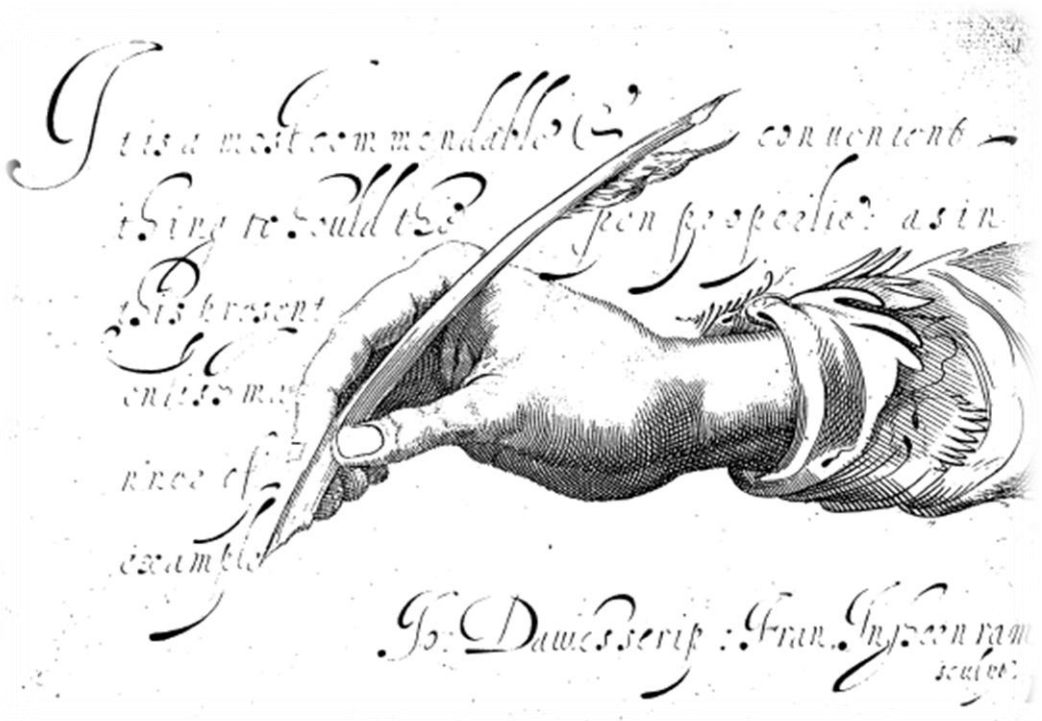 It is a most commendable & convenient
thing to hould the pen properlie: as in
this present
example
Jo: Davies scrip: Fran.
sculpt: